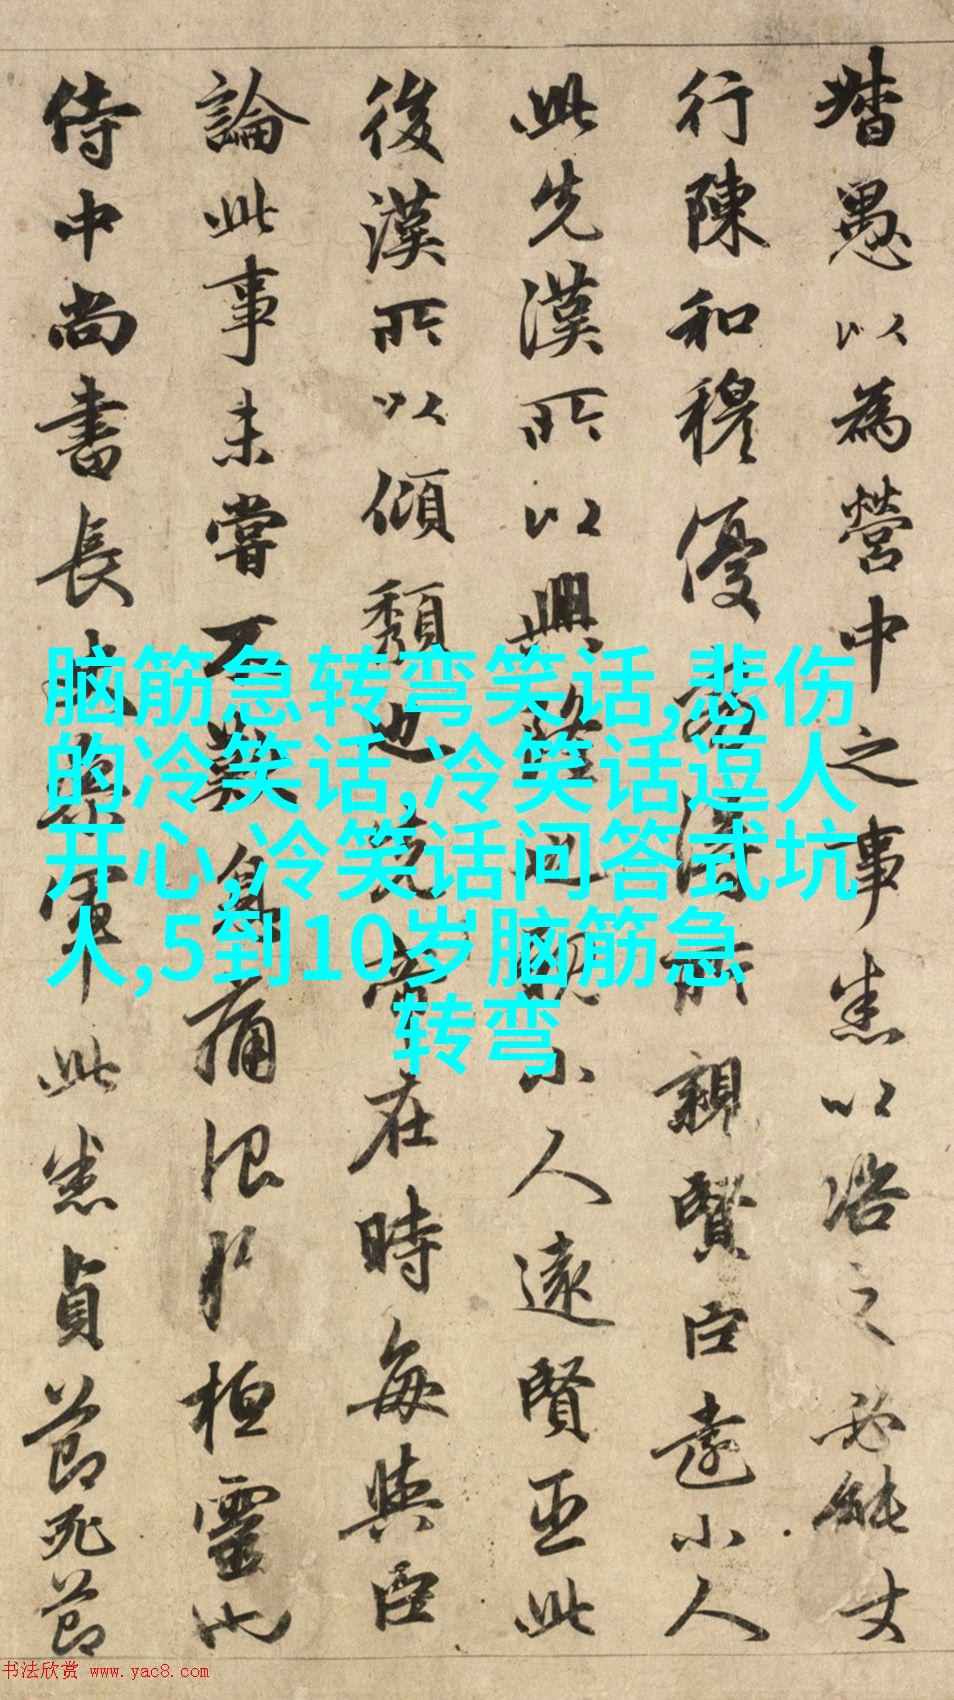 督愚以為營中之事悉以咨之必能
行陳和穆優劣得所親賢臣遠小人
此先漢所以興隆也親小人遠賢臣此
後漢所以傾頹也先帝在時每與臣
論此事未嘗不歎息痛恨於桓靈也
侍中尚書長史參軍此悉貞節死節
脑筋急转弯笑话,悲伤
的冷笑话,冷笑话逗人
开心,冷笑话问答式坑
人,5到10岁脑筋急
转弯
书法欣赏 www.yac8.com